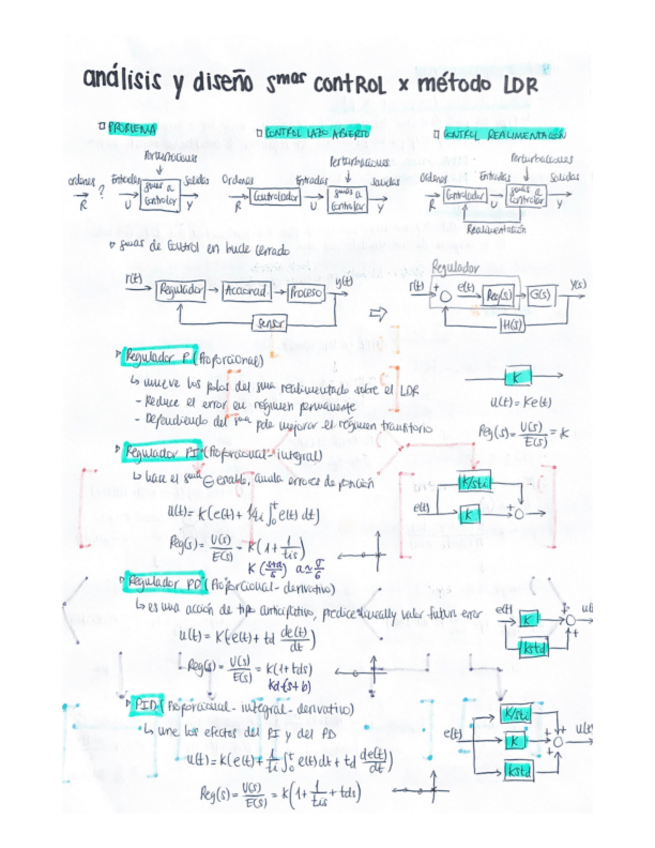 análisis y diseño smas control x método LDR
PROBLEMA
CONTROL LAZO ABIERTO
CONTROL REALIMENTACIÓN
Perturbaciones
ordenes ? Entradas smas a controlar Salidas
R U Y
Perturbaciones
Ordenes Controlador Entradas smas a controlar Salidas
R U Y
Perturbaciones
Ordenes Controlador Entradas smas a controlar Salidas
R U Y
Realimentación
smas de control en bucle cerrado
r(t) Regulador Accionad. Proceso y(t)
Sensor
Regulador
r(t) + e(t) Reg(s) G(s) y(s)
H(s)
Regulador P (Proporcional)
↳ mueve los polos del sma realimentado sobre el LDR
- Reduce el error en régimen permanente
- Dependiendo del sma pde mejorar el régimen transitorio
K
u(t) = Ke(t)
Reg(s) = U(s)/E(s) = K
Regulador PI (Proporcional-integral)
↳ hace el sma ⊖ estable, anula errores de posición
u(t) = K(e(t) + 1/ti ∫₀ᵗ e(t) dt)
Reg(s) = U(s)/E(s) = K(1 + 1/tis)
K/sti
e(t) K +
Regulador PD (Proporcional-derivativo)
↳ es una acción de tipo anticipativo, predice linealmente valor futuro error
u(t) = K(e(t) + td de(t)/dt)
Reg(s) = U(s)/E(s) = K(1+tds)
Kd(s+b)
e(t) K + u(t)
Kstd +
PID (Proporcional-integral-derivativo)
↳ une los efectos del PI y del PD
u(t) = K(e(t) + 1/ti ∫₀ᵗ e(t) dt + td de(t)/dt)
Reg(s) = U(s)/E(s) = K(1 + 1/tis + tds)
K/sti
e(t) K + u(t)
Kstd